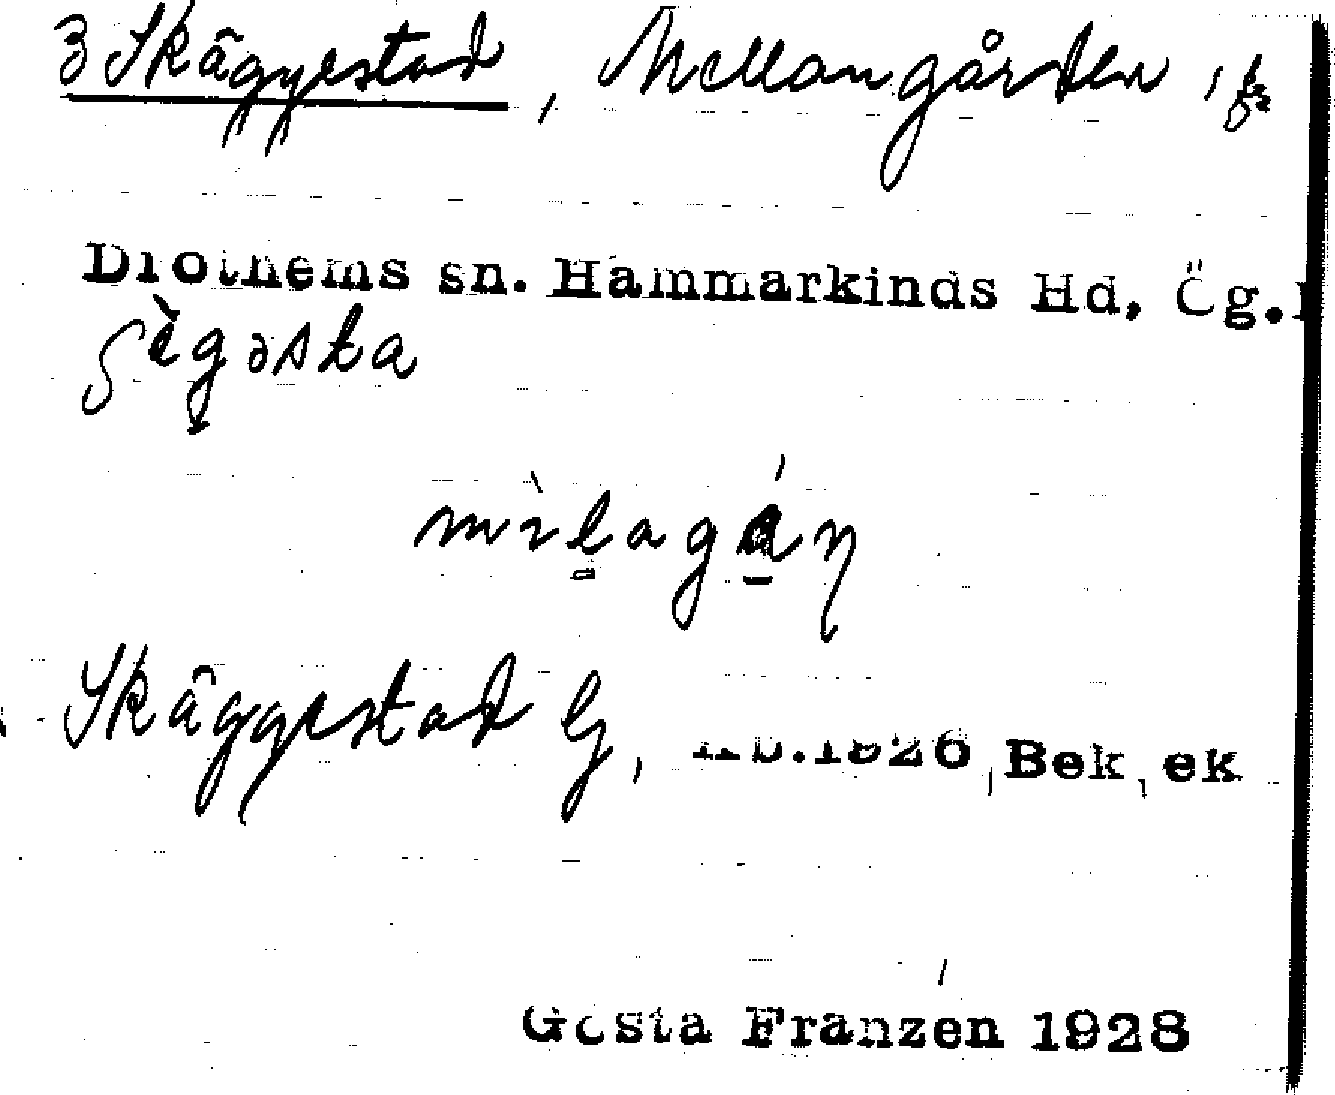 3 Skäggestad, Mellangården,
Drothems sn. Hammarkinds Hd, Ög.
ʃègəsta
Skäggestad G, 1826, Bek, ek
Gösta Franzén 1928